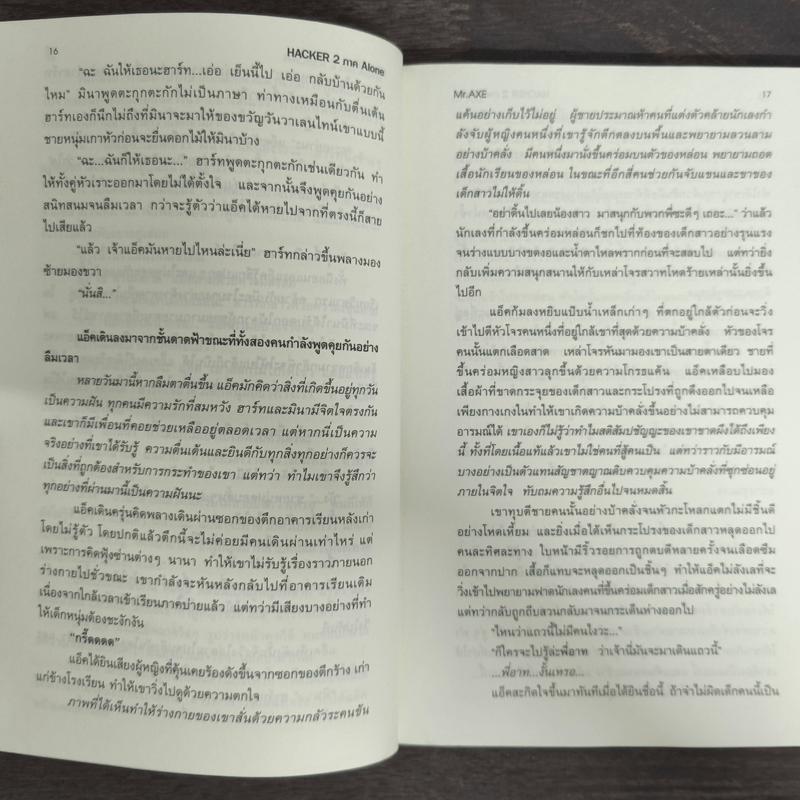 16
HACKER 2 ภาค Alone
"ฉะ ฉันให้เธอนะฮาร์ท...เอ่อ เย็นนี้ไป เอ่อ กลับบ้านด้วยกัน
ไหม" มินาพูดตะกุกตะกักไม่เป็นภาษา ท่าทางเหมือนกับตื่นเต้น
ฮาร์ทเองก็นึกไม่ถึงที่มินาจะมาให้ของขวัญวันวาเลนไทน์เขาแบบนี้
ชายหนุ่มเกาหัวก่อนจะยื่นดอกไม้ให้มินาบ้าง
"ฉะ...ฉันก็ให้เธอนะ..." ฮาร์ทพูดตะกุกตะกักเช่นเดียวกัน ทำ
ให้ทั้งคู่หัวเราะออกมาโดยไม่ได้ตั้งใจ และจากนั้นจึงพูดคุยกันอย่าง
สนิทสนมจนลืมเวลา กว่าจะรู้ตัวว่าแอ็คได้หายไปจากที่ตรงนี้ก็สาย
ไปเสียแล้ว
"แล้ว เจ้าแอ็คมันหายไปไหนล่ะเนี่ย" ฮาร์ทกล่าวขึ้นพลางมอง
ซ้ายมองขวา
"นั่นสิ..."
แอ็คเดินลงมาจากชั้นดาดฟ้าขณะที่ทั้งสองคนกำลังพูดคุยกันอย่าง
ลืมเวลา
หลายวันมานี้หากลืมตาตื่นขึ้น แอ็คมักคิดว่าสิ่งที่เกิดขึ้นอยู่ทุกวัน
เป็นความฝัน ทุกคนมีความรักที่สมหวัง ฮาร์ทและมินามีจิตใจตรงกัน
และเขาก็มีเพื่อนที่คอยช่วยเหลืออยู่ตลอดเวลา แต่หากนี่เป็นความ
จริงอย่างที่เขาได้รับรู้ ความตื่นเต้นและยินดีกับทุกสิ่งทุกอย่างก็ควรจะ
เป็นสิ่งที่ถูกต้องสำหรับการกระทำของเขา แต่ทว่า ทำไมเขาจึงรู้สึกว่า
ทุกอย่างที่ผ่านมานี้เป็นความฝันนะ
แอ็คเดินครุ่นคิดพลางเดินผ่านซอกของตึกอาคารเรียนหลังเก่า
โดยไม่รู้ตัว โดยปกติแล้วตึกนี้จะไม่ค่อยมีคนเดินผ่านเท่าไหร่ แต่
เพราะการคิดฟุ้งซ่านต่างๆ นานา ทำให้เขาไม่รับรู้เรื่องราวภายนอก
ร่างกายไปชั่วขณะ เขากำลังจะหันหลังกลับไปที่อาคารเรียนเดิม
เนื่องจากใกล้เวลาเข้าเรียนภาคบ่ายแล้ว แต่ทว่ามีเสียงบางอย่างที่ทำ
ให้เด็กหนุ่มต้องชะงักงัน
"กรี๊ดดดด"
แอ็คได้ยินเสียงผู้หญิงที่คุ้นเคยร้องดังขึ้นจากซอกของตึกร้าง เก่า
แก่ข้างโรงเรียน ทำให้เขาวิ่งไปดูด้วยความตกใจ
ภาพที่ได้เห็นทำให้ร่างกายของเขาสั่นด้วยความกลัวระคนขัน
Mr.AXE
17
แค้นอย่างเก็บไว้ไม่อยู่ ผู้ชายประมาณห้าคนที่แต่งตัวคล้ายนักเลงกำ
ลังจับผู้หญิงคนหนึ่งที่เขารู้จักดีกดลงบนพื้นและพยายามลวนลาม
อย่างบ้าคลั่ง มีคนหนึ่งมานั่งขึ้นคร่อมบนตัวของหล่อน พยายามถอด
เสื้อนักเรียนของหล่อน ในขณะที่อีกสี่คนช่วยกันจับแขนและขาของ
เด็กสาวไม่ให้ดิ้น
"อย่าดิ้นไปเลยน้องสาว มาสนุกกับพวกพี่ซะดีๆ เถอะ..." ว่าแล้ว
นักเลงที่กำลังขึ้นคร่อมหล่อนก็ชกไปที่ท้องของเด็กสาวอย่างรุนแรง
จนร่างแบบบางงอและน้ำตาไหลพรากก่อนที่จะสลบไป แต่ทว่ายิ่ง
กลับเพิ่มความสนุกสนานให้กับเหล่าโจรสวาทโหดร้ายเหล่านั้นยิ่งขึ้น
ไปอีก
แอ็คก้มลงหยิบแป๊บน้ำเหล็กเก่าๆ ที่ตกอยู่ใกล้ตัวก่อนจะวิ่ง
เข้าไปตีหัวโจรคนหนึ่งที่อยู่ใกล้เขาที่สุดด้วยความบ้าคลั่ง หัวของโจร
คนนั้นแตกเลือดสาด เหล่าโจรหันมามองเขาเป็นสายตาเดียว ชายที่
ขึ้นคร่อมหญิงสาวลุกขึ้นด้วยความโกรธแค้น แอ็คเหลือบไปมอง
เสื้อผ้าที่ขาดกระจุยของเด็กสาวและกระโปรงที่ถูกดึงออกไปจนเหลือ
เพียงกางเกงในทำให้เขาเกิดความบ้าคลั่งขึ้นอย่างไม่สามารถควบคุม
อารมณ์ได้ เขาเองก็ไม่รู้ว่าทำไมสติสัมปชัญญะของเขาขาดผึงได้ถึงเพียง
นี้ ทั้งที่โดยเนื้อแท้แล้วเขาไม่ใช่คนที่สู้คนเป็น แต่ทว่าราวกับมีอารมณ์
บางอย่างเป็นตัวแทนสัญชาตญาณดิบควบคุมความบ้าคลั่งที่ซุกซ่อนอยู่
ภายในจิตใจ ทับถมความรู้สึกอื่นไปจนหมดสิ้น
เขาทุบตีชายคนนั้นอย่างบ้าคลั่งจนหัวกะโหลกแตกไม่มีชิ้นดี
อย่างโหดเหี้ยม และยิ่งเมื่อได้เห็นกระโปรงของเด็กสาวหลุดออกไป
คนละทิศละทาง ใบหน้ามีริ้วรอยการถูกตบตีหลายครั้งจนเลือดซึม
ออกจากปาก เสื้อก็แทบจะหลุดออกเป็นชิ้นๆ ทำให้แอ็คไม่ลังเลที่จะ
วิ่งเข้าไปพยายามฟาดนักเลงคนที่ขึ้นคร่อมเด็กสาวเมื่อสักครู่อย่างไม่ลังเล
แต่ทว่ากลับถูกถีบสวนกลับมาจนกระเด็นห่างออกไป
"ไหนว่าแถวนี้ไม่มีคนไงวะ..."
"ก็ใครจะไปรู้ล่ะพี่อาท ว่าเจ้านี่มันจะมาเดินแถวนี้"
...พี่อาท...งั้นเหรอ...
แอ็คสะกิดใจขึ้นมาทันทีเมื่อได้ยินชื่อนี้ ถ้าจำไม่ผิดเด็กคนนี้เป็น